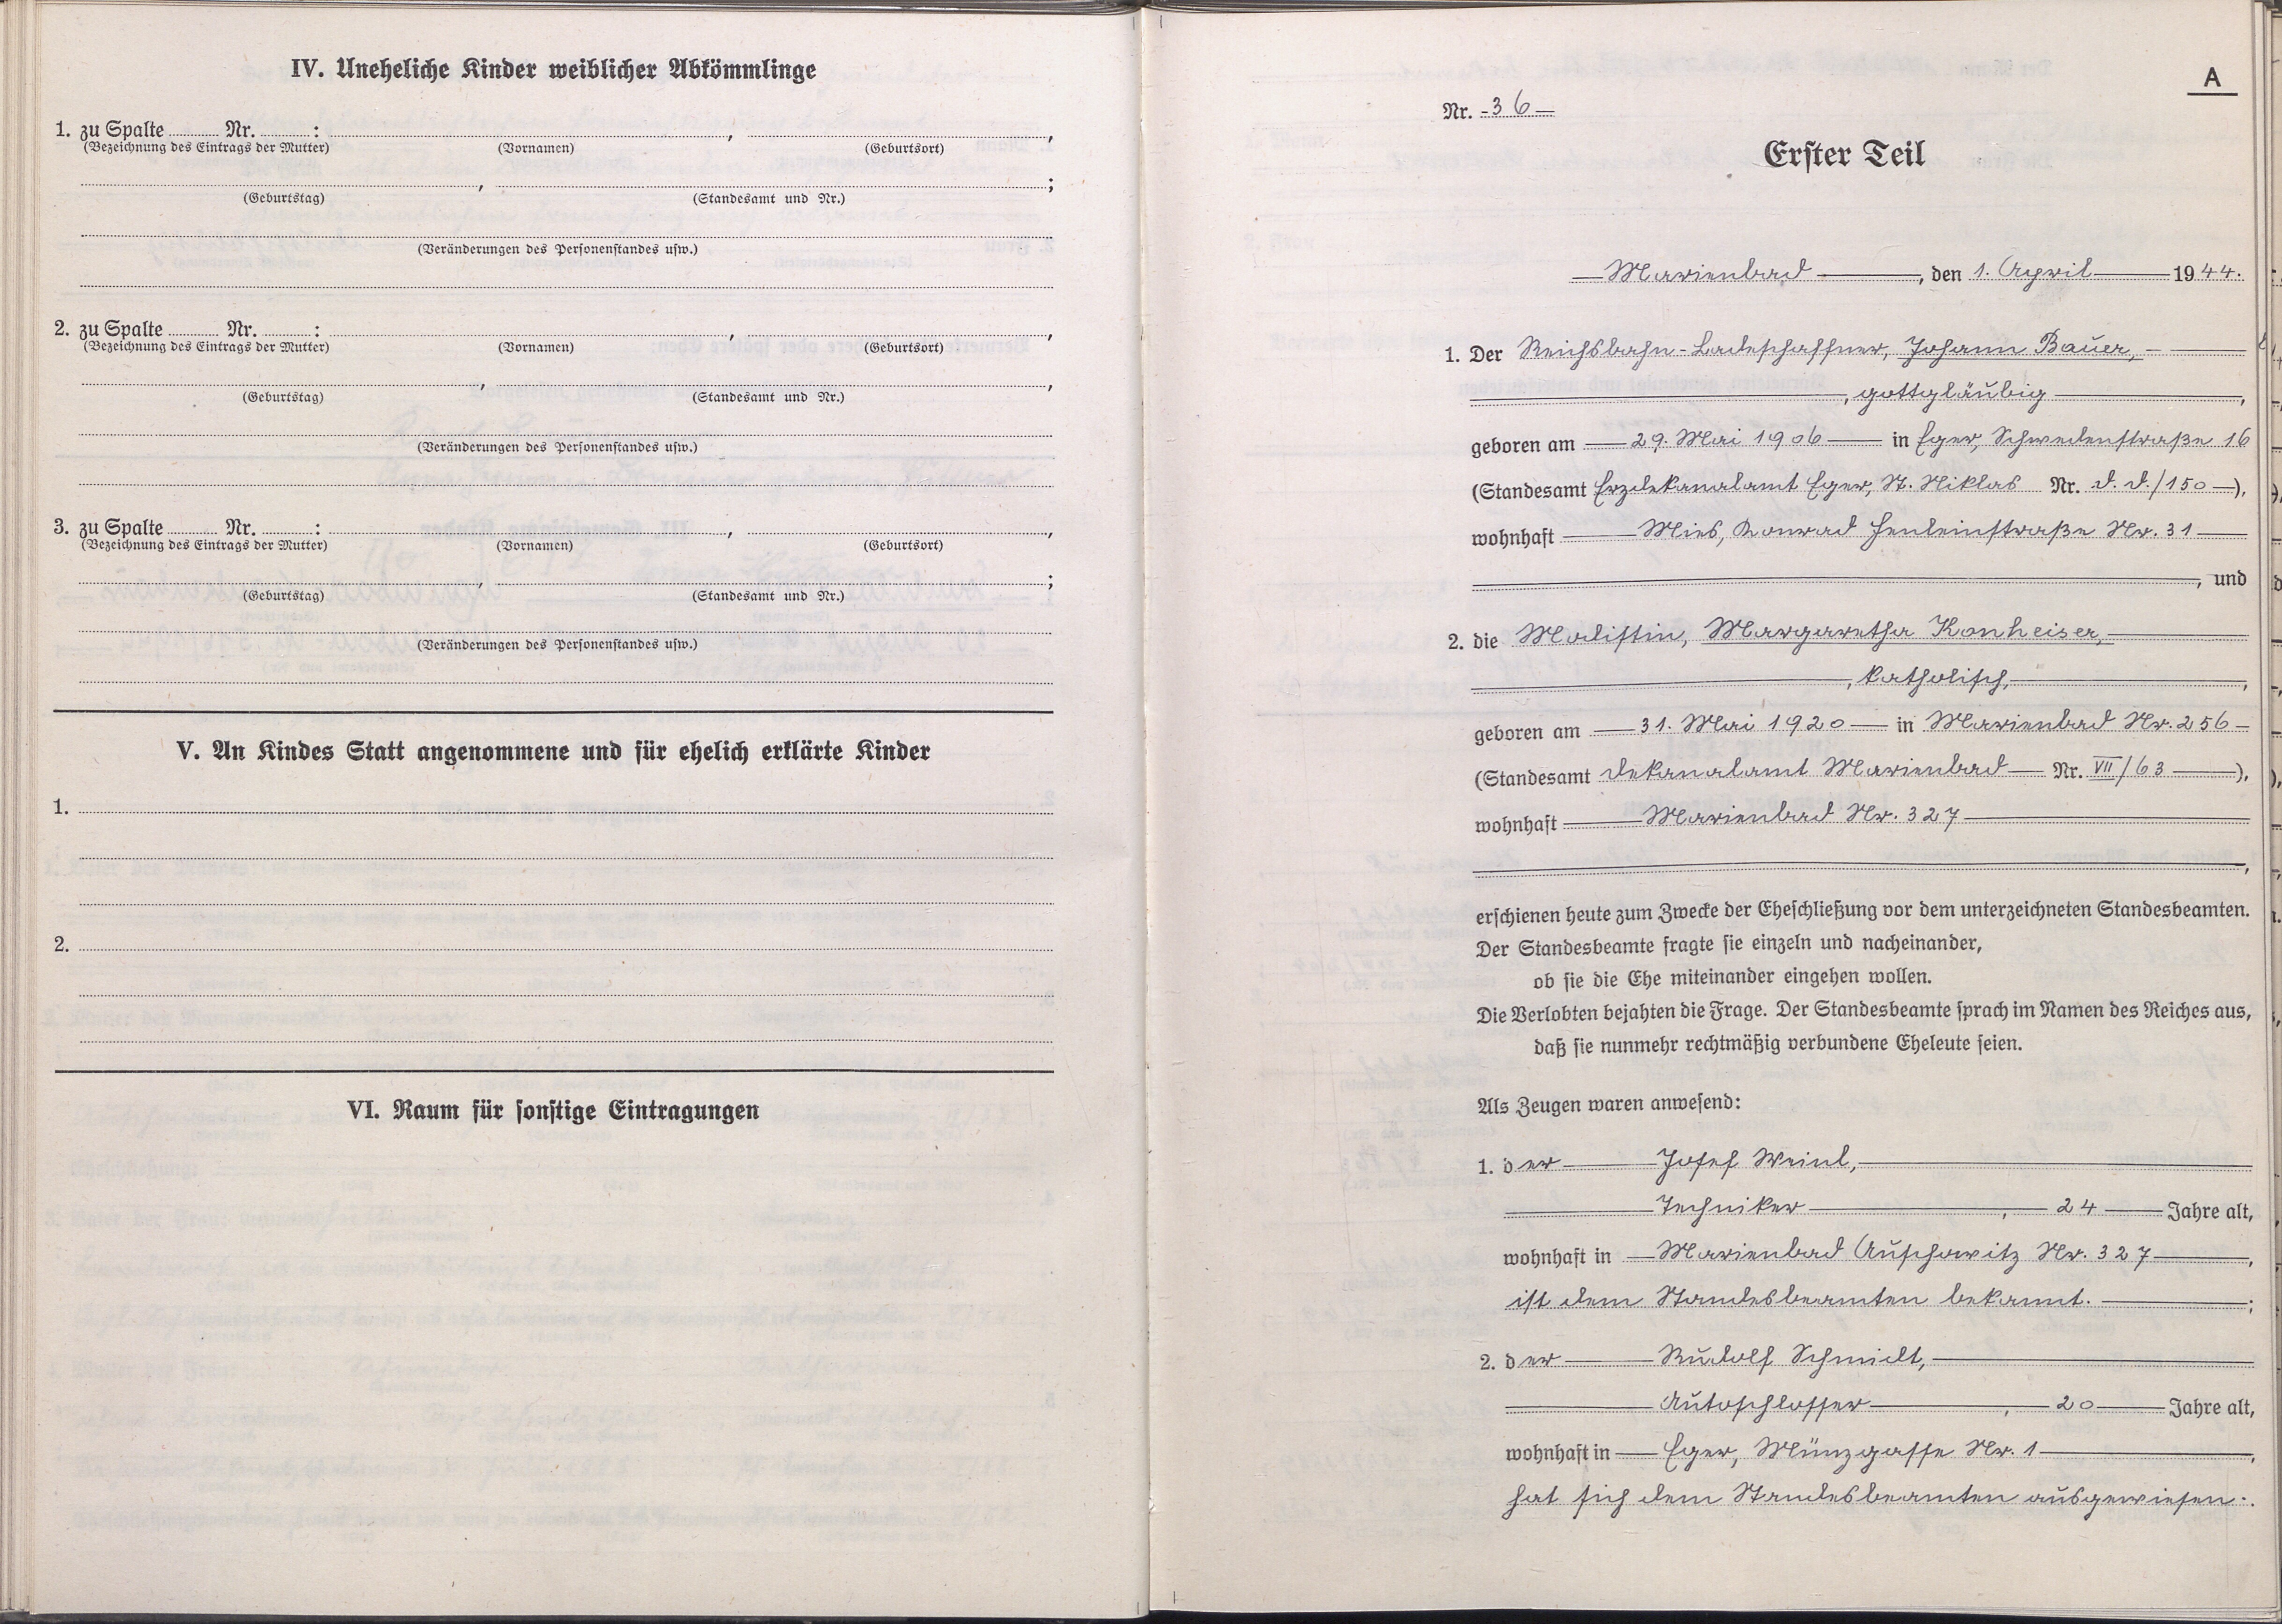 IV. Uneheliche Kinder weiblicher Abkömmlinge
1. zu Spalte Nr. : , ,
(Bezeichnung des Eintrags der Mutter) (Vornamen) (Geburtsort)
, ;
(Geburtstag) (Standesamt und Nr.)
(Veränderungen des Personenstandes usw.)
2. zu Spalte Nr. : , ,
(Bezeichnung des Eintrags der Mutter) (Vornamen) (Geburtsort)
, ,
(Geburtstag) (Standesamt und Nr.)
(Veränderungen des Personenstandes usw.)
3. zu Spalte Nr. : , ,
(Bezeichnung des Eintrags der Mutter) (Vornamen) (Geburtsort)
, ;
(Geburtstag) (Standesamt und Nr.)
(Veränderungen des Personenstandes usw.)
V. An Kindes Statt angenommene und für ehelich erklärte Kinder
1.
2.
VI. Raum für sonstige Eintragungen
A
Nr. -36-
Erster Teil
Marienbad, den 1. April 1944.
1. Der Reichsbahn-Ladeschaffner, Johann Bauer,
, gottgläubig,
geboren am 29. Mai 1906 in Eger, Schwedenstraße 16
(Standesamt Erzdekanalamt Eger, St. Niklas Nr. d. d./150),
wohnhaft Mies, Konrad Henleinstraße Nr. 31
, und
2. die Modistin, Margaretha Konheiser,
, katholisch,
geboren am 31. Mai 1920 in Marienbad Nr. 256
(Standesamt Dekanalamt Marienbad Nr. VII/63),
wohnhaft Marienbad Nr. 327
,
erschienen heute zum Zwecke der Eheschließung vor dem unterzeichneten Standesbeamten.
Der Standesbeamte fragte sie einzeln und nacheinander,
ob sie die Ehe miteinander eingehen wollen.
Die Verlobten bejahten die Frage. Der Standesbeamte sprach im Namen des Reiches aus,
daß sie nunmehr rechtmäßig verbundene Eheleute seien.
Als Zeugen waren anwesend:
1. der Josef Weinl,
Techniker, 24 Jahre alt,
wohnhaft in Marienbad Auschowitz Nr. 327,
ist dem Standesbeamten bekannt. ;
2. der Rudolf Schmidt,
Autoschlosser, 20 Jahre alt,
wohnhaft in Eger, Münzgasse Nr. 1,
hat sich dem Standesbeamten ausgewiesen.